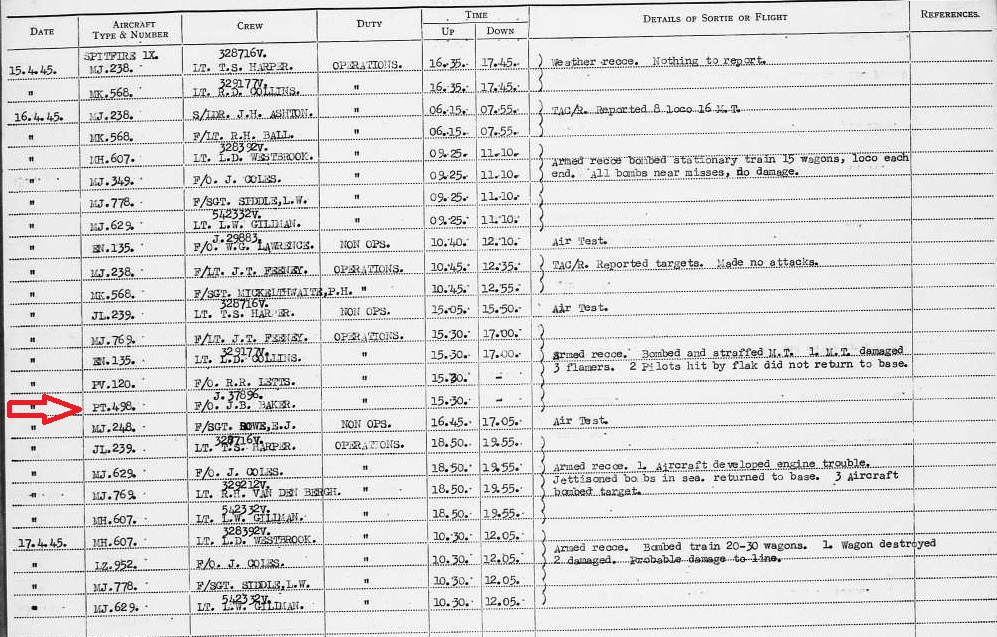 DATE AIRCRAFT TYPE & NUMBER CREW DUTY TIME UP DOWN DETAILS OF SORTIE OR FLIGHT REFERENCES.
SPITFIRE 1X. 328716V.
15.4.45. MJ.238. LT. T.S. HARPER. OPERATIONS. 16.35. 17.45. Weather recce. Nothing to report.
329177V.
" MK.568. LT. R.D. COLLINS. " 16.35. 17.45.
16.4.45. MJ.238. S/LDR. J.H. ASHTON. " 06.15. 07.55. TAC/R. Reported 8 loco 16 M.T.
" MK.568. F/LT. R.H. BALL. " 06.15. 07.55.
328392V.
" MH.607. LT. L.D. WESTBROOK. " 09.25. 11.10. Armed recce bombed stationary train 15 wagons, loco each
" MJ.349. F/O. J. COLES. " 09.25. 11.10. end. All bombs near misses, no damage.
" MJ.778. F/SGT. SIDDLE,L.W. " 09.25. 11.10.
542332V.
" MJ.629. LT. L.W. GILDMAN. " 09.25. 11.10.
J.29883.
" EN.135. F/O. W.G. LAWRENCE. NON OPS. 10.40. 12.10. Air Test.
" MJ.238. F/LT. J.T. FEENEY. OPERATIONS. 10.45. 12.35. TAC/R. Reported targets. Made no attacks.
" MK.568. F/SGT. MICKELTHWAITE,P.H. " 10.45. 12.55.
328716V.
" JL.239. LT. T.S. HARPER. NON OPS. 15.05. 15.50. Air Test.
" MJ.769. F/LT. J.T. FEENEY. OPERATIONS. 15.30. 17.00.
329177V.
" EN.135. LT. L.D. COLLINS. " 15.30. 17.00. Armed recce. Bombed and straffed M.T. 1. M.T. damaged
" PV.120. F/O. R.R. LETTS. " 15.30. - 3 flamers. 2 Pilots hit by flak did not return to base.
J.37896.
" PT.498. F/O. J.B. BAKER. " 15.30. -
" MJ.248. F/SGT. ROWE,E.J. NON OPS. 16.45. 17.05. Air Test.
328716V.
" JL.239. LT. T.S. HARPER. OPERATIONS. 18.50. 19.55.
" MJ.629. F/O. J. COLES. " 18.50. 19.55. Armed recce. 1. Aircraft developed engine trouble.
329212V. Jettisoned bombs in sea. returned to base. 3 Aircraft
" MJ.769. LT. R.H. VAN DEN BERGH. " 18.50. 19.55. bombed target.
542332V.
" MH.607. LT. L.W. GILDMAN. " 18.50. 19.55.
328392V.
17.4.45. MH.607. LT. L.D. WESTBROOK. " 10.30. 12.05. Armed recce. Bombed train 20-30 wagons. 1. Wagon destroyed
" LZ.952. F/O. J. COLES. " 10.30. 12.05. 2 damaged. Probable damage to line.
" MJ.778. F/SGT. SIDDLE,L.W. " 10.30. 12.05.
542332V.
" MJ.629. LT. L.W. GILDMAN. " 10.30. 12.05.